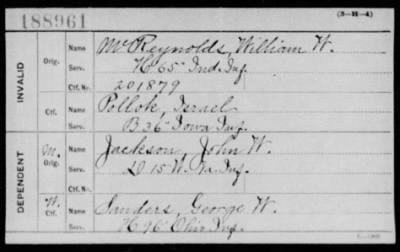 188961
(3-H-4)
INVALID
Orig.
Name
McReynolds, William W.
Serv.
H. 65" Ind. Inf.
Ctf. No.
201879
Ctf.
Name
Pollok, Israel
Serv.
B 36" Iowa Inf.
DEPENDENT
M.
Orig.
Name
Jackson, John W.
Serv.
D 15 W. Va. Inf.
W.
Ctf.
Name
Sanders, George W.
Serv.
H 96" Ohio Inf.